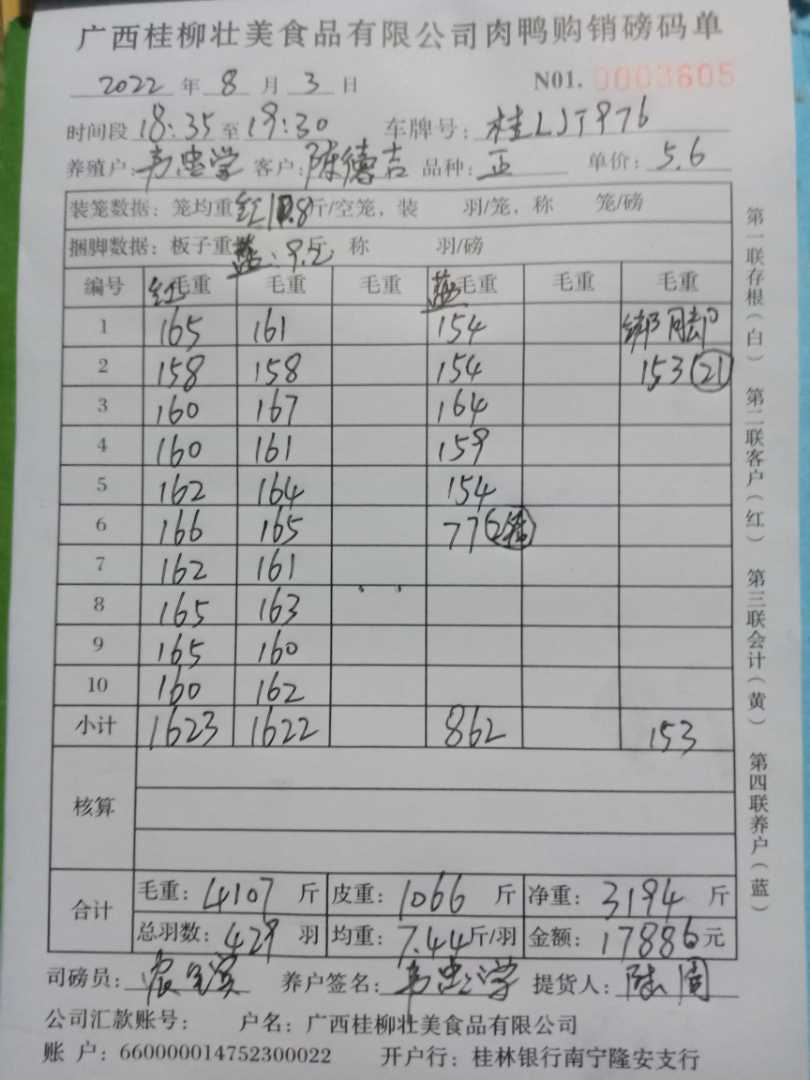 广西桂柳壮美食品有限公司肉鸭购销磅码单
2022 年 8 月 3 日 N01. 0003605
时间段 18:35 至 19:30 车牌号: 桂LJT976
养殖户: 韦忠学 客户: 陈德吉 品种: 正 单价: 5.6
装笼数据: 笼均重 红 斤/空笼, 装 羽/笼, 称 笼/磅
捆脚数据: 板子重 蓝: 斤 称 羽/磅
编号 红 毛重 毛重 毛重 蓝 毛重 毛重 毛重
1 165 161 154 绑脚
2 158 158 154 153 (21)
3 160 167 164
4 160 161 159
5 162 164 154
6 166 165 77
7 162 161
8 165 163
9 165 160
10 160 162
小计 1623 1622 862 153
核算
合计 毛重: 4107 斤 皮重: 1066 斤 净重: 3194 斤
总羽数: 429 羽 均重: 7.44 斤/羽 金额: 17886 元
司磅员: 养户签名: 韦忠学 提货人: 陈周
公司汇款账号: 户名: 广西桂柳壮美食品有限公司
账 户: 660000014752300022 开户行: 桂林银行南宁隆安支行
第一联存根(白) 第二联客户(红) 第三联会计(黄) 第四联养户(蓝)